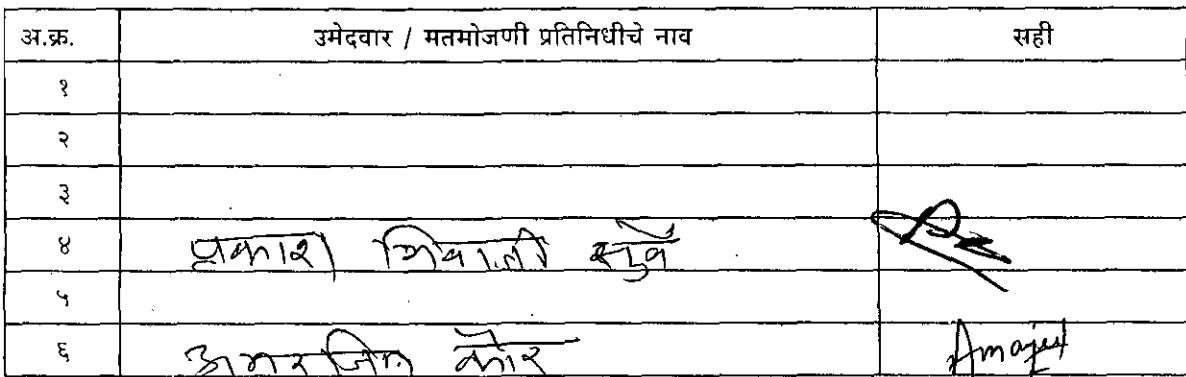 अ.क्र. उमेदवार / मतमोजणी प्रतिनिधीचे नाव सही
१
२
३
४ प्रकाश शिवाजी सुर्वे
५
६ अमरजित कौर Amarjeet